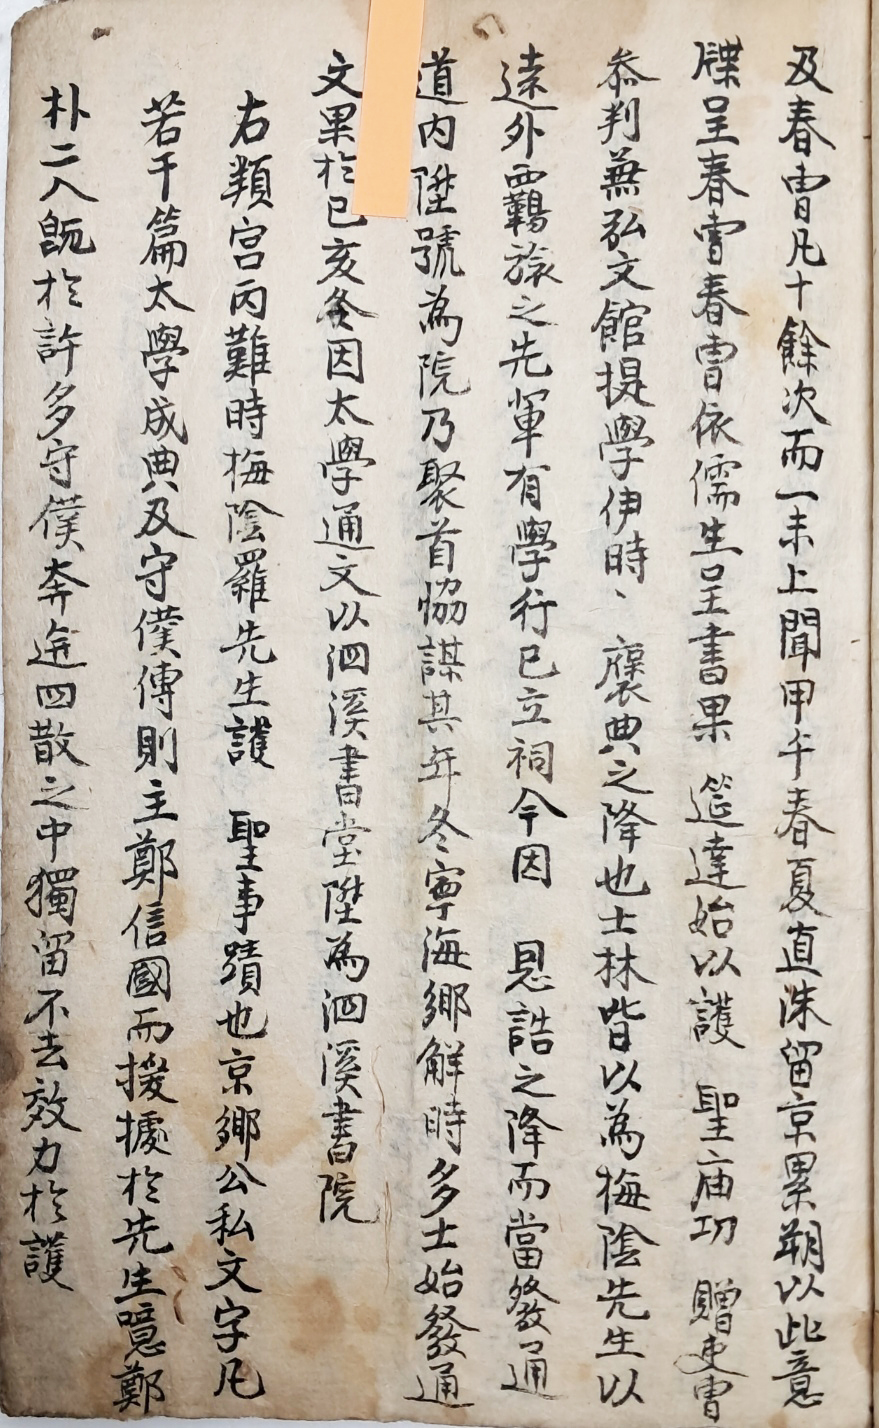 及春曺凡十餘次而一未上聞甲午春夏直洙留京累朔以此意
牒呈春曺春曺依儒生呈書果 筵達始以護 聖庙功 贈吏曺
叅判兼弘文館提學伊時、褒典之降也士林皆以為梅陰先生以
遠外羈旅之先軰有學行已立祠今因 恩誥之降而當發通
道内陞號為院乃聚首恊謀其年冬寧海鄉解時多士始發通
文果於已亥冬因太學通文以泗溪書堂陞為泗溪書院
右類宮丙難時梅陰羅先生護 聖事蹟也京鄉公私文字凡
若干篇太學成典及守僕傳則主鄭信國而援據於先生噫鄭
朴二人旣於許多守僕奔迸四散之中獨留不去效力於護